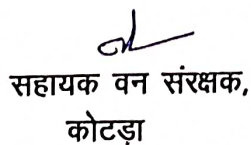 सहायक वन संरक्षक,
कोटड़ा